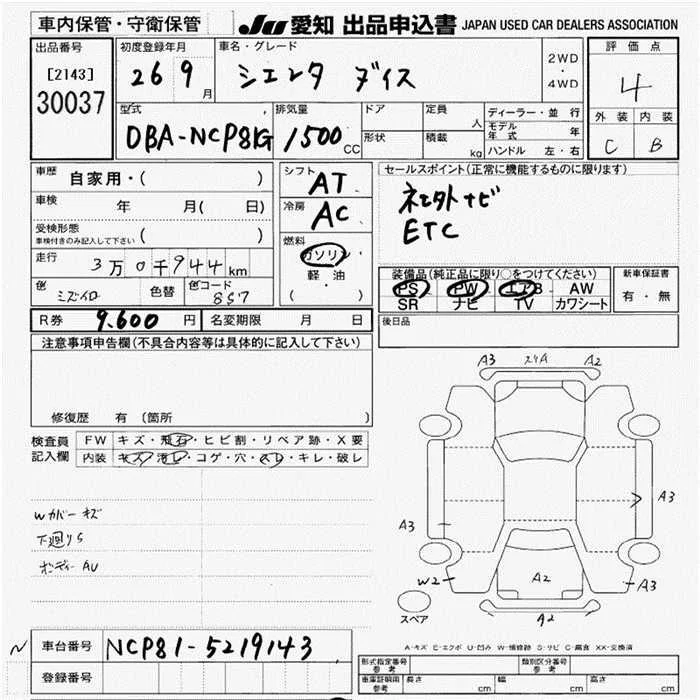 車内保管・守衛保管
JU 愛知 出品申込書 JAPAN USED CAR DEALERS ASSOCIATION
出品番号
[2143]
30037
初度登録年月
26 9 月
車名・グレード
シエンタ ダイス
2WD
・
4WD
評価点
4
外装 内装
C B
型式
DBA-NCP81G
排気量
1500 CC
ドア
形状
定員 人
積載 kg
ディーラー・並行
モデル年式 年
ハンドル 左・右
車歴 自家用・( )
車検 年 月( 日)
受検形態
車検付きのみ記入して下さい ( )
走行 3万0千944km
色 ミズイロ
色替
色コード 8S7
シフト AT
冷房 AC
燃料
ガソリン
軽油
( ・ )
セールスポイント(正常に機能するものに限ります)
社外ナビ
ETC
装備品(純正品に限り○をつけてください)
PS PW エアB AW
SR ナビ TV カワシート
新車保証書
有・無
R券 9.600 円
名変期限 月 日
後日品
注意事項申告欄(不具合内容等は具体的に記入して下さい)
修復歴 有 (箇所
検査員
記入欄
FW キズ・飛石・ヒビ割・リペア跡・X要
内装 キズ・汚レ・コゲ・穴・スレ・キレ・破レ
Wカバー キズ
下廻りS
ボディー AU
A3 スリA A2
A3
A3
W2
A2
A3
A2
スペア
A-キズ E-エクボ U-凹み W-補修跡 S-サビ C-腐食 XX-交換済
車台番号 NCP81-5219143
登録番号
形式指定番号
参考
類別区分番号
参考
車庫証明用
参考
長さ cm
幅 cm
高さ cm